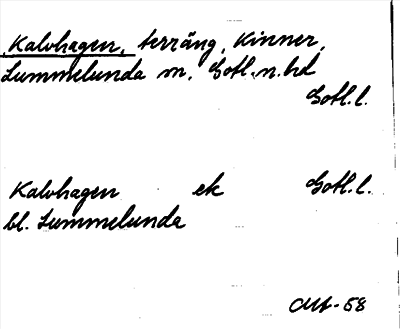 Kalvhagen, terräng, Kinner,
Lummelunda sn, Gotl. n. hd
Gotl. l.
Kalvhagen ek Gotl. l.
bl. Lummelunda
-58